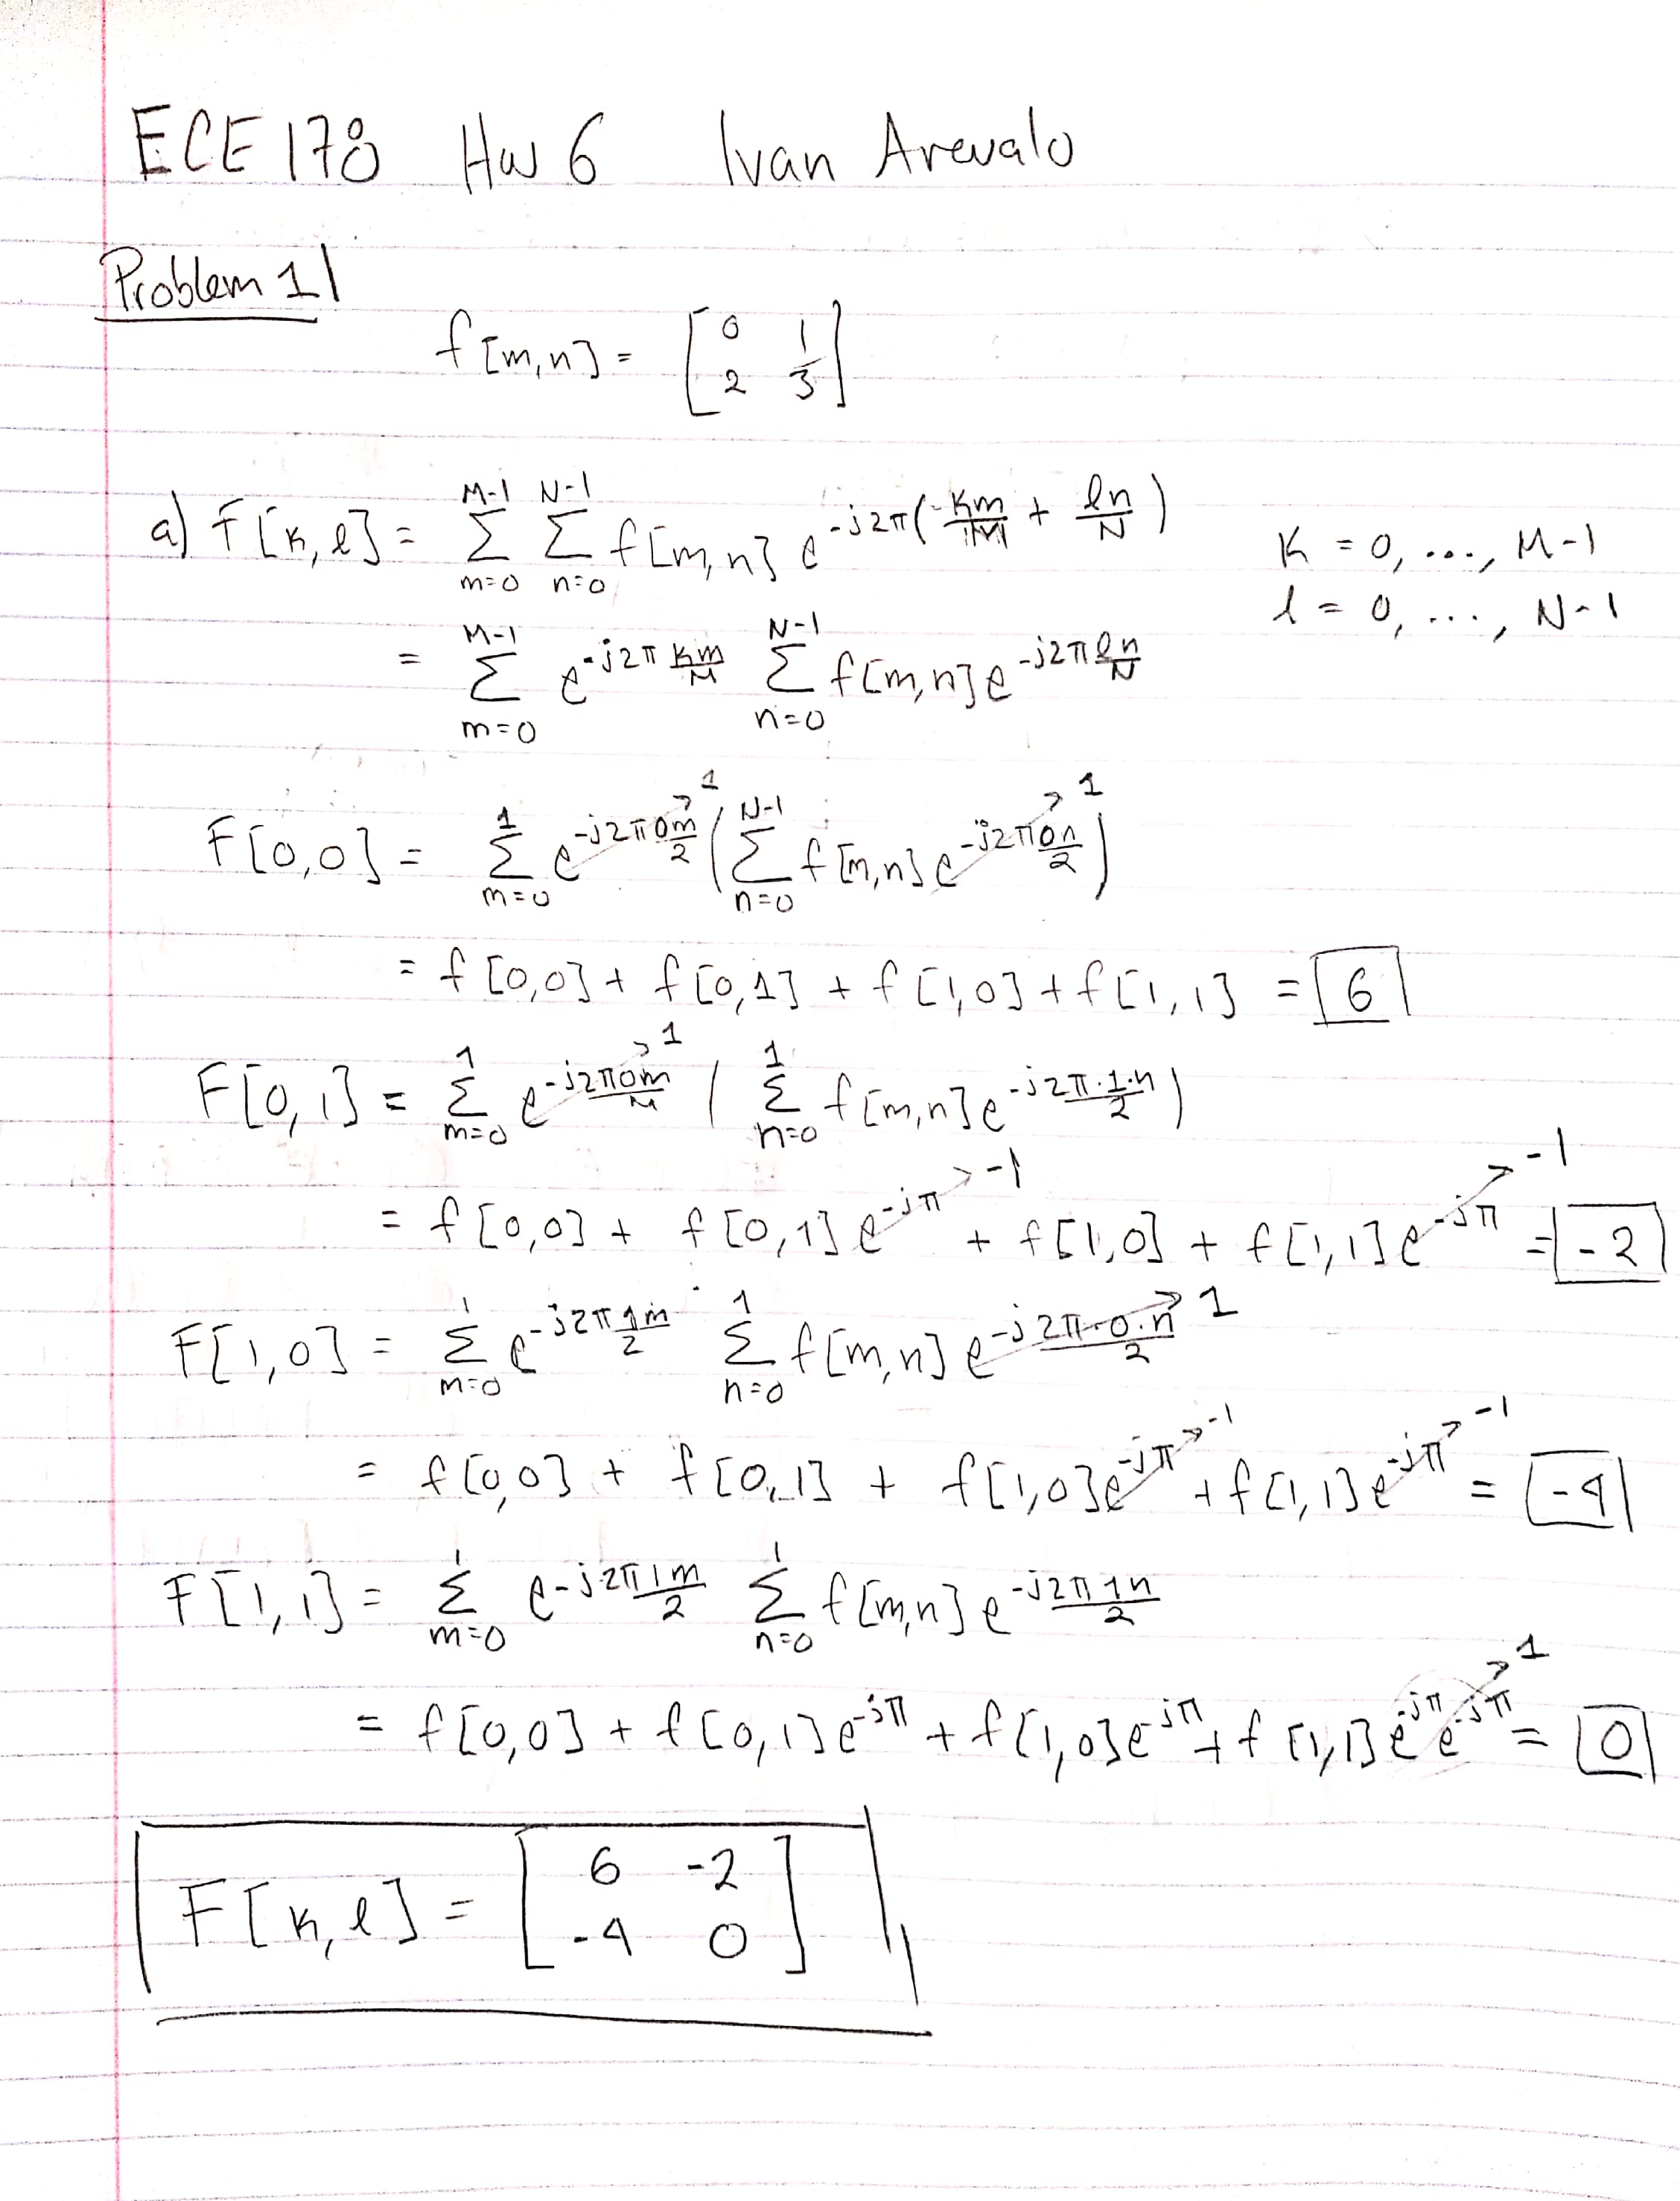 ECE 178 Hw 6 Ivan Arevalo
Problem 1
f[m,n] = [0 1; 2 3]
a) F[k,l] = Σ_{m=0}^{M-1} Σ_{n=0}^{N-1} f[m,n] e^{-j2π(km/M + ln/N)} K = 0, ..., M-1
l = 0, ..., N-1
= Σ_{m=0}^{M-1} e^{-j2π km/M} Σ_{n=0}^{N-1} f[m,n] e^{-j2π ln/N}
F[0,0] = Σ_{m=0}^{1} e^{-j2π 0m/2} → 1 ( Σ_{n=0}^{N-1} f[m,n] e^{-j2π 0n/2} → 1 )
= f[0,0] + f[0,1] + f[1,0] + f[1,1] = 6
F[0,1] = Σ_{m=0}^{1} e^{-j2π 0m/M} → 1 ( Σ_{n=0}^{1} f[m,n] e^{-j2π·1·n/2} )
= f[0,0] + f[0,1] e^{-jπ} → -1 + f[1,0] + f[1,1] e^{-jπ} → -1 = -2
F[1,0] = Σ_{m=0}^{1} e^{-j2π 1m/2} Σ_{n=0}^{1} f[m,n] e^{-j2π·0·n/2} → 1
= f[0,0] + f[0,1] + f[1,0] e^{-jπ} → -1 + f[1,1] e^{-jπ} → -1 = -4
F[1,1] = Σ_{m=0}^{1} e^{-j2π 1m/2} Σ_{n=0}^{1} f[m,n] e^{-j2π 1n/2}
= f[0,0] + f[0,1] e^{-jπ} + f[1,0] e^{-jπ} + f[1,1] e^{-jπ} e^{-jπ} → 1 = 0
F[k,l] = [6 -2; -4 0]